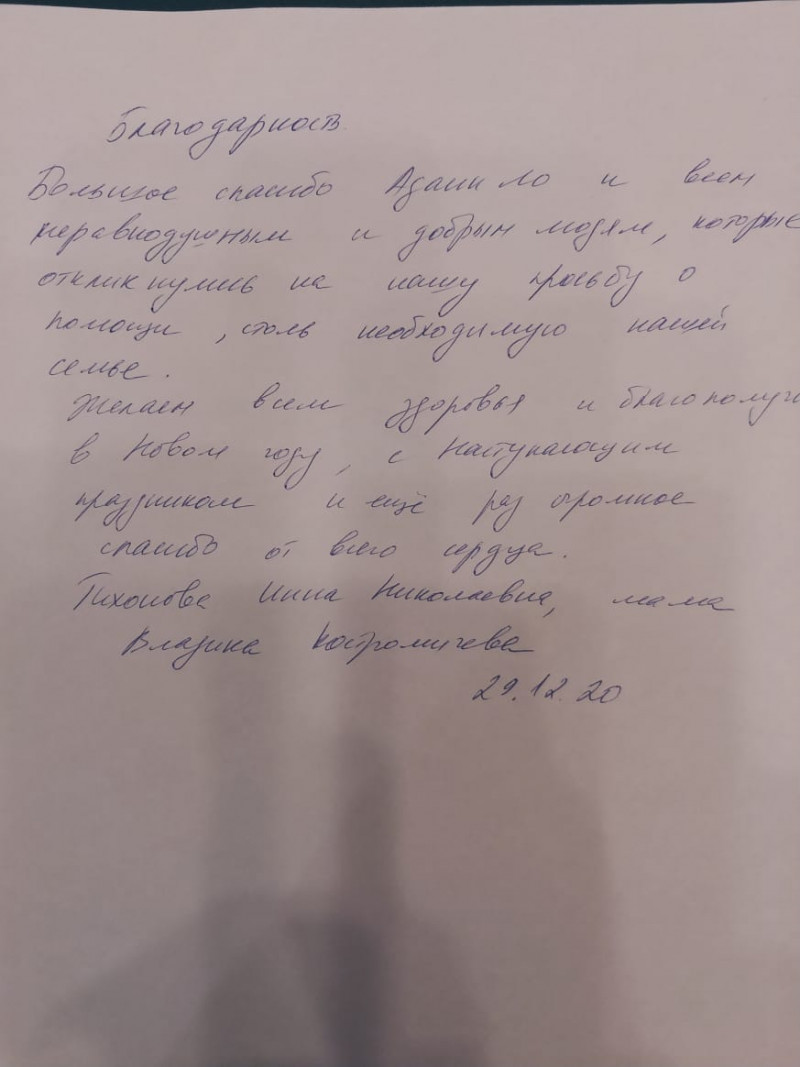 Благодарность.
Большое спасибо Адамило и всем
неравнодушным и добрым людям, которые
откликнулись на нашу просьбу о
помощи, столь необходимую нашей
семье.
Желаем всем здоровья и благополучи
в Новом году, с Наступающим
праздником и ещё раз огромное
спасибо от всего сердца.
Тихонова Инна Николаевна, мама
Костромичева
29.12.20